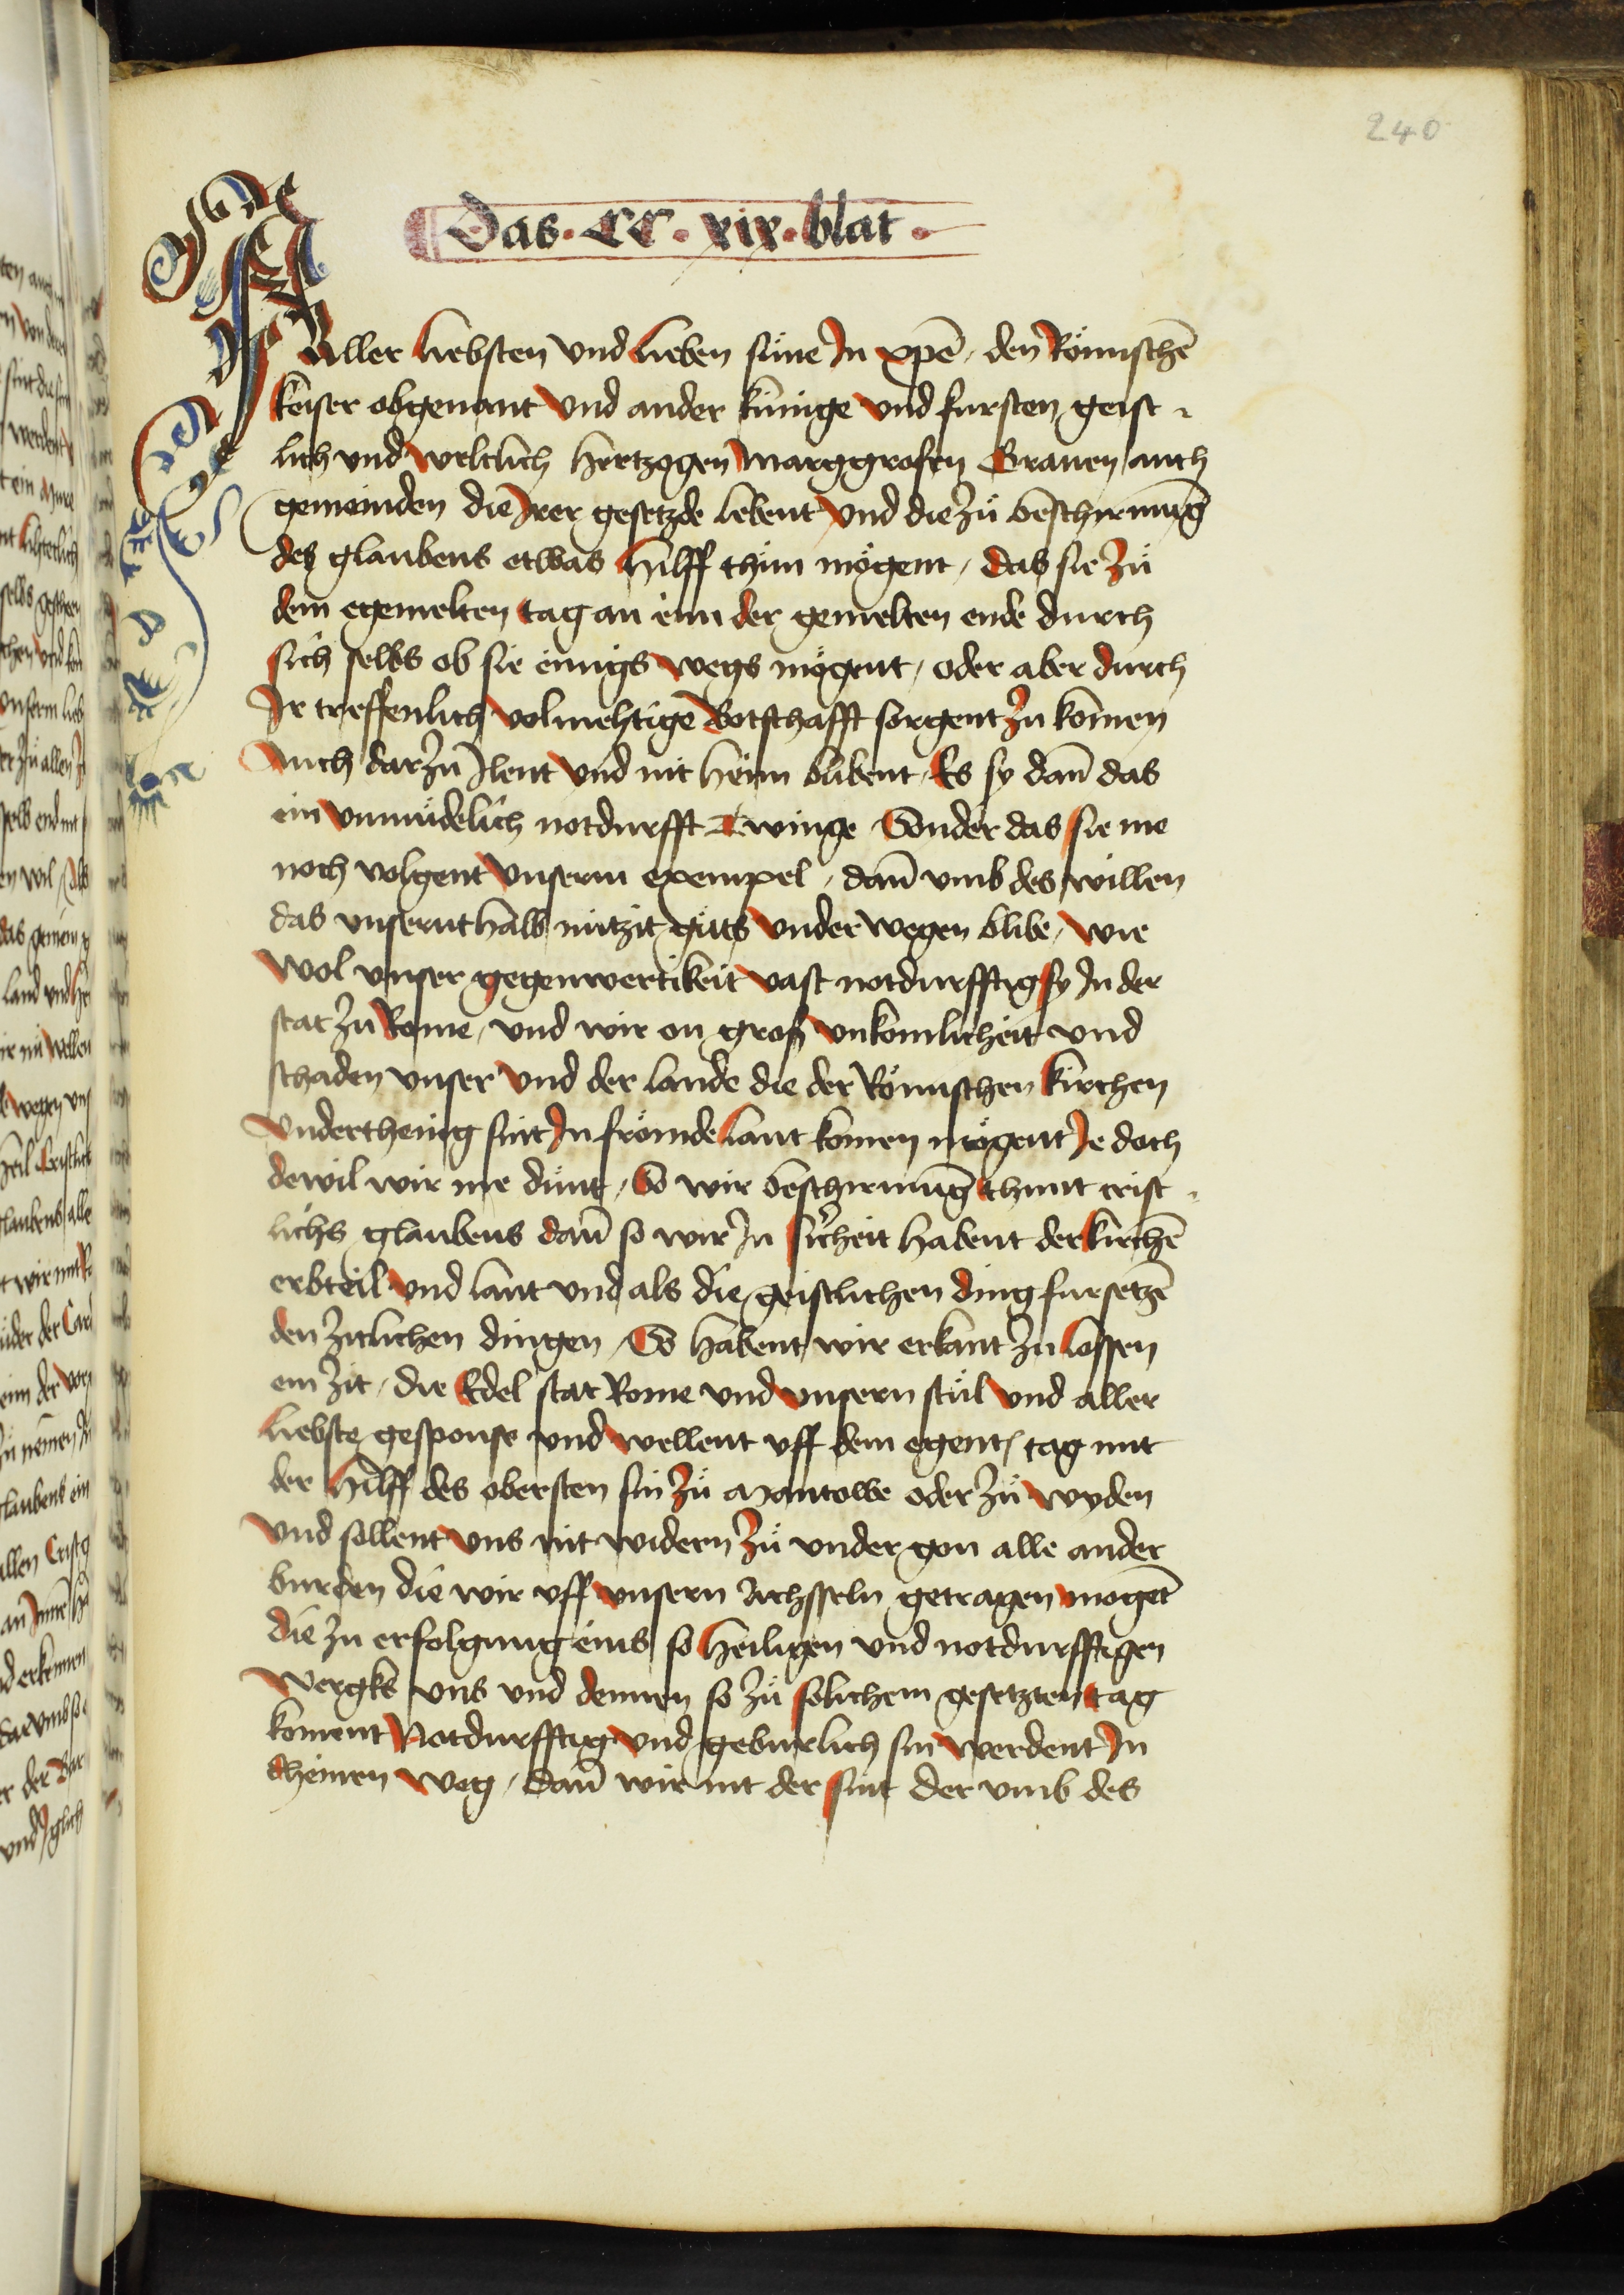 240
Das · CC · xix · blat ·
Aller liebsten vnd lieben süne Jn xpē / den Römischē
keiser obgenant vnd ander künige vnd fursten geist-
lich vnd weltlich hertzogen Marggrofen Grauen auch
gemeinden die Jrer gesetzde lebent vnd die zů beschirmūg
des glaubens etwas hilff thůn mögent / das sie zů
dem egemelten tag an eim der gemelten ende durch
sich selbs ob sie einigs wegs mögent / oder aber durch
Jr treffenlich volmehtige Botschafft sorgent zu kōmen
Auch dar zu Jlent vnd nit heim blibent / Es sy dañ das
ein vnmidelich notdurfft Twinge Sonder das sie me
noch volgent vnserm exempel / dañ vmb des willen
das vnsernthalb nützit güts vnder wegen blibe / wie
wol vnser gegenwertikeit vast notdurfftig sy Jn der
stat zu Rome / vnd wir on groß vnkomlicheit vnd
schaden vnser vnd der lande die der Römischen kirchen
vnderthenig sint Jn frömde lant komen mögent Je doch
dewil wir me dünt / So wir beschirmūg thunt crist-
lichs glaubens dañ so wir Jn sicheit habent der kirchē
erbteil vnd lant vnd als die geistlichen ding fur setzē
den zitlichen dingen / So habent wir erkant zu lossen
ein zit / die Edel stat Rome vnd vnsern stůl vnd aller
liebste gesponse vnd wellent vff dem egent tag mit
der hilff des obersten sin zů Mantowe oder zů wyden
vnd sollent vns nit widern zů vnder gon alle ander
burden die wir vff vnsern Achsseln getragen mogēt
die zu erfolgung eins so heiligen vnd notdurfftigen
wergks vns vnd dennen so zů solichem gesetzten tag
koment Notdurfftig vnd geburlich sin werdent Jn
theinen weg / dañ wir nit der sint der vmb des